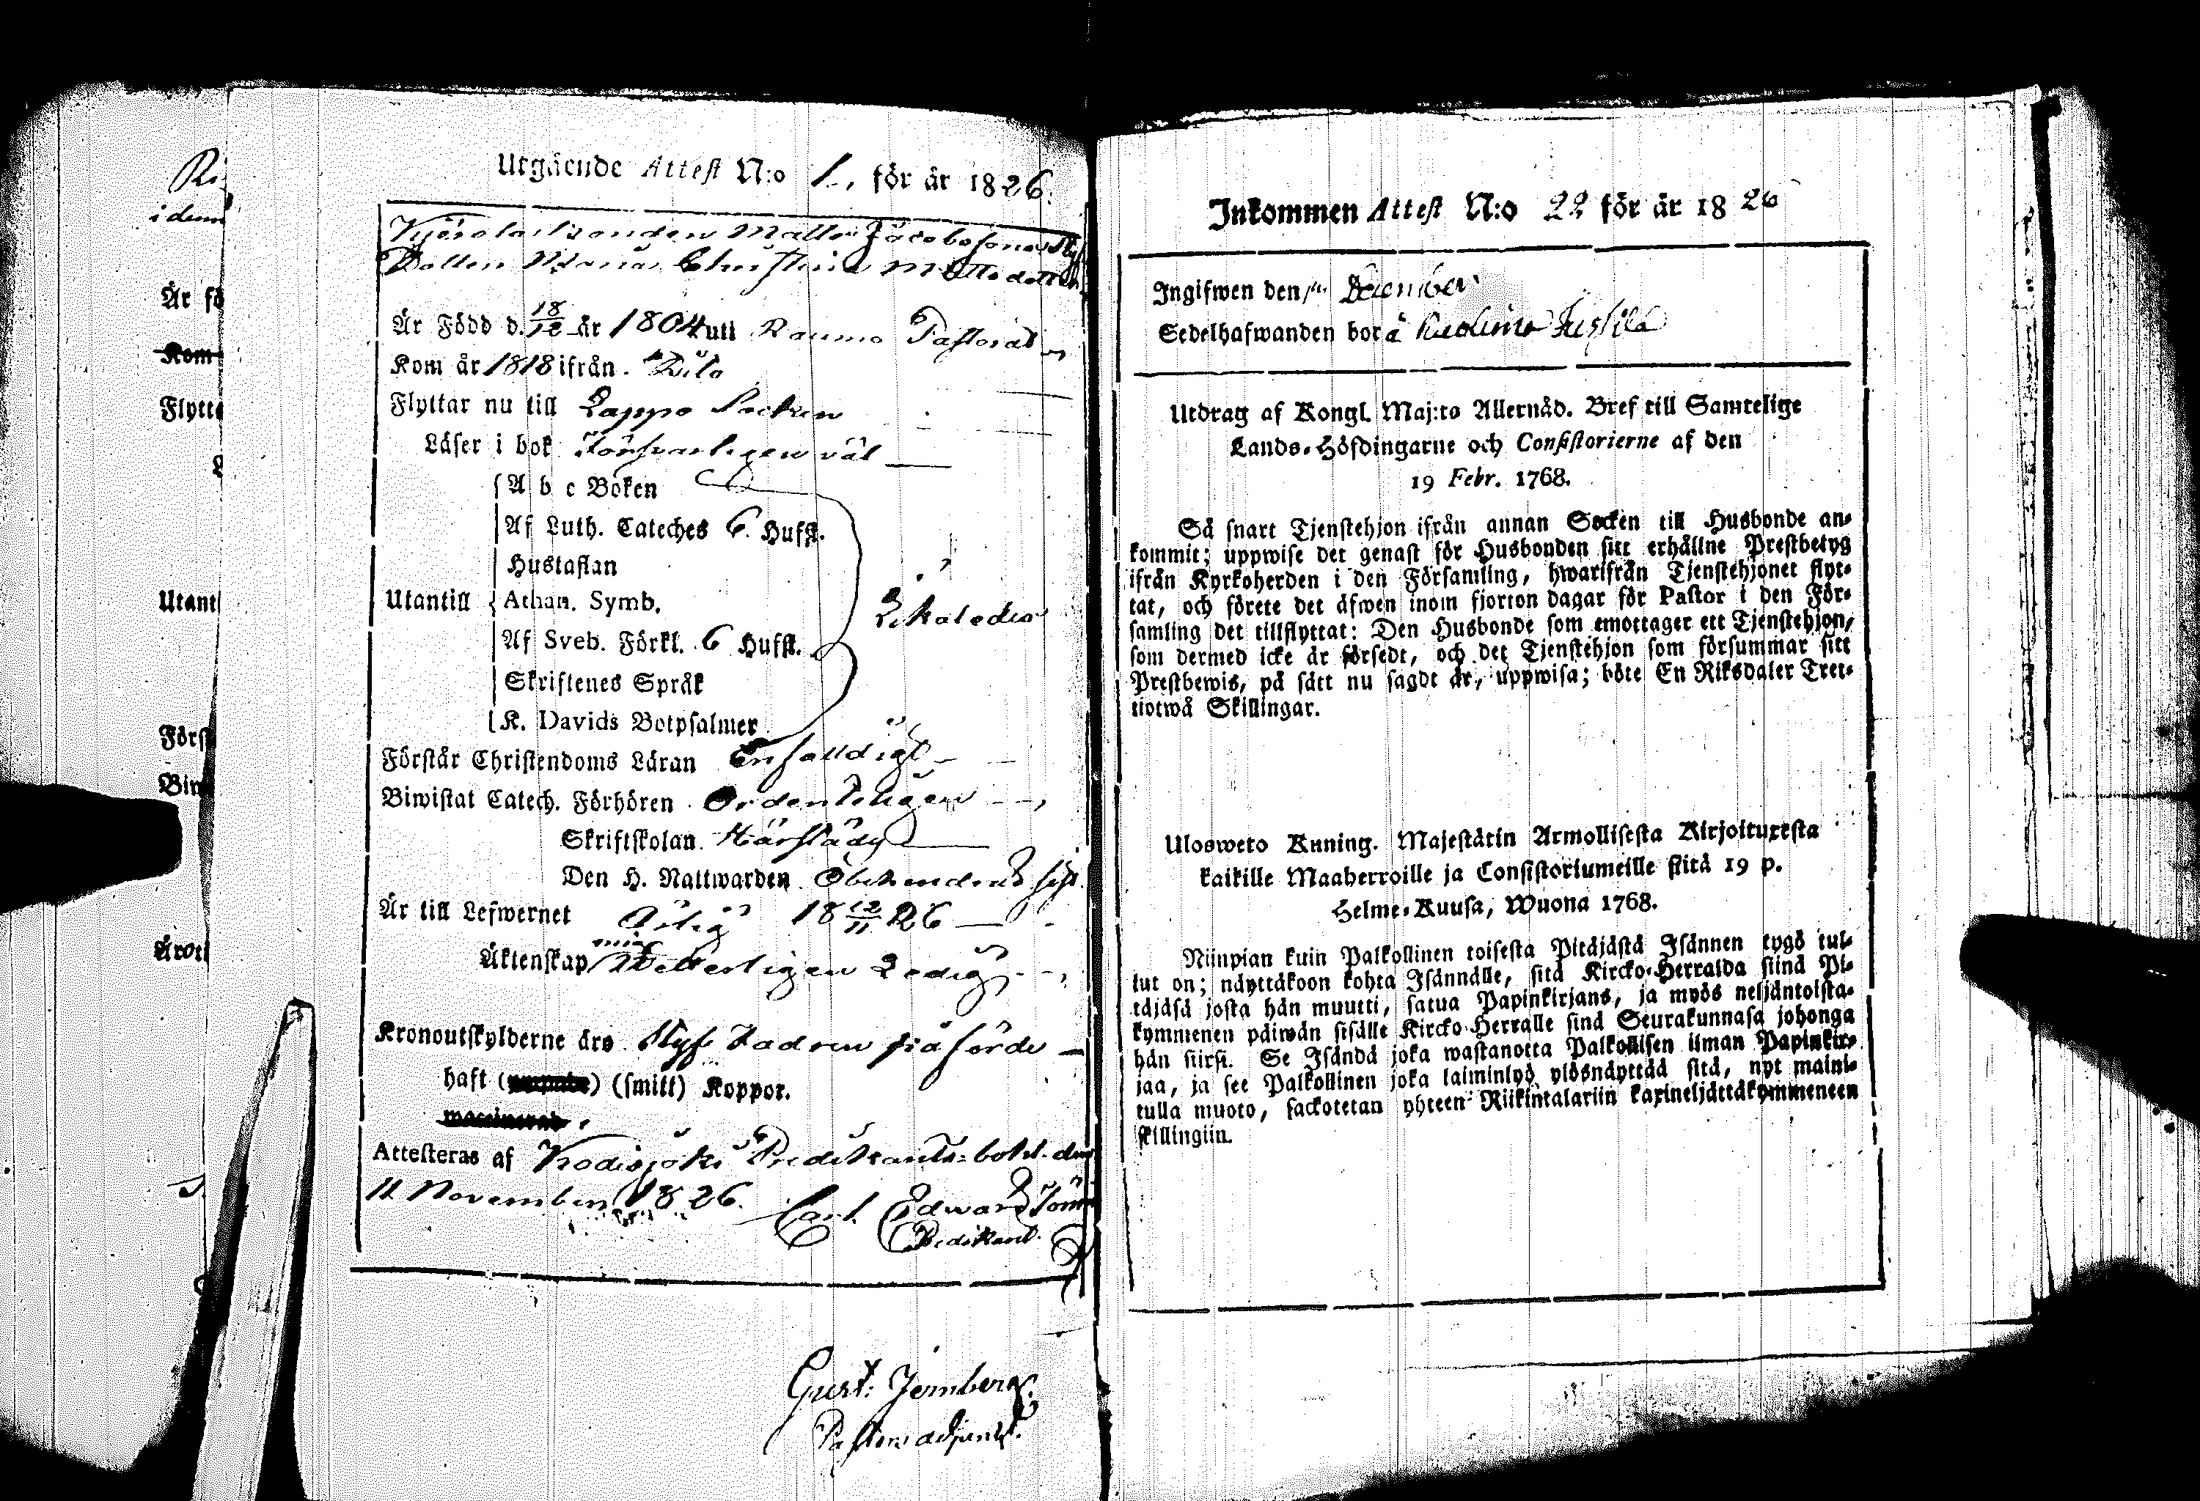 Utgående Attest N:o 1., för år 1826.
Matts Jacobssons Styf
Dottern Maria Christina Mattsdotter
Är Född d. 18/12 år 1804 uti Raumo Pastorat
Kom år 1818 ifrån Dito
Flyttar nu till Lappo Socken
Läser i bok Försvarligen väl
A b c Boken
Af Luth. Cateches 6 Hufst.
Hustaflan
Utantill Athan. Symb. Likaledes
Af Sveb. Förkl. 6 Hufst.
Skriftenes Språk
K. Davids Botpsalmer
Förstår Christendoms Läran Enfalldigt
Biwistat Catech. Förhören Ordenteligen
Skriftskolan Härstädes
Den H. Nattwarden sist
Är till Lefwernet Ärlig 18 12/11 26
Äktenskap Ledig
Kronoutskylderne äro Styf Fadren påförde
haft ( ) (smitt) Koppor.
Attesteras af Kodisjoki Predikants bohl den
11 November 1826. Carl Edward
Predikant.
Gust: Jernberg.
Pastors adjunct.
Ri
i dem
Är fö
Kom
Flytta
L
Utant
Förs
Biw
Är oti
Inkommen Attest N:o 22 för år 1826
Ingifwen den December
Sedelhafwanden bor å
Utdrag af Kongl. Maj:ts Allernåd. Bref till Samtelige
Lands-Höfdingarne och Consistorierne af den
19 Febr. 1768.
Så snart Tjenstehjon ifrån annan Socken till Husbonde an-
kommit; uppwise det genast för Husbonden sitt erhållne Prestbetyg
ifrån Kyrkoherden i den Församling, hwarifrån Tjenstehjonet flyt-
tat, och förete det äfwen inom fjorton dagar för Pastor i den För-
samling det tillflyttat: Den Husbonde som emottager ett Tjenstehjon,
som dermed icke är försedt, och det Tjenstehjon som försummar sitt
Prestbewis, på sätt nu sagdt är, uppwisa; böte En Riksdaler Tret-
tiotwå Skillingar.
Ulosweto Kuning. Majestätin Armollisesta Kirjoituxesta
kaikille Maaherroille ja Consistoriumeille siitä 19 p.
Helme-Kuusa, Wuona 1768.
Niinpian kuin Palkollinen toisesta Pitäjästä Isännen tygö tul-
lut on; näyttäköon kohta Isännälle, sitä Kircko-Herralda siinä Pi-
täjäsä josta hän muutti, saatua Papinkirjans, ja myös neljäntoista-
kymmenen päiwän sisälle Kircko-Herralle sinä Seurakunnasa johonga
hän siirsi. Se Isändä joka wastanotta Palkollisen ilman Papinkir-
jaa, ja see Palkollinen joka laiminlyö ylösnäyttää sitä, nyt maini-
tulla muoto, sackotetan yhteen Riikintalariin kaxineljättäkymmeneen
skillingiin.